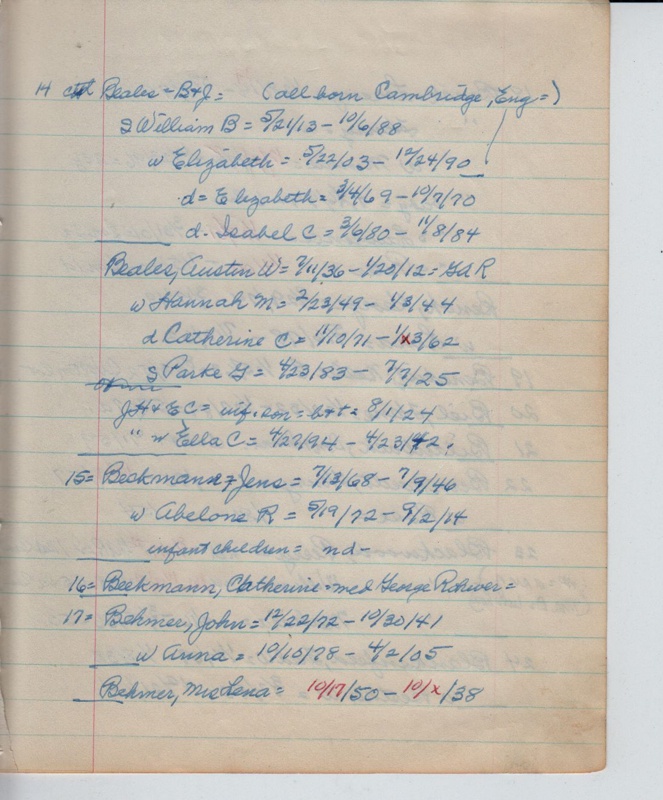 14 Beales = B+J = (all born Cambridge, Eng =)
S William B = 5/21/13 - 10/6/88
w Elizabeth = 5/22/03 - 12/24/90
d = Elizabeth = 3/4/69 - 10/7/70
d. Isabel C = 3/6/80 - 11/8/84
Beales, Austin W = 7/11/36 - 1/20/12 = GAR
w Hannah M = 2/23/49 - 1/3/44
d Catherine C = 11/10/71 - 1/x3/62
S Parke G = 4/23/83 - 7/7/25
J H + E C = inf. son = b+d = 8/1/24
" w Ella C = 4/27/94 - 4/23/42
15 = Beckmann = Jens = 7/13/68 - 7/9/46
w Abelone R = 5/19/72 - 9/2/14
infant children = nd -
16 = Beekmann, Catherine = med George Rohwer =
17 = Behmer, John = 12/22/72 - 10/30/41
w Anna = 10/10/78 - 4/2/05
Behmer, Mrs Lena = 10/17/50 - 10/x/38